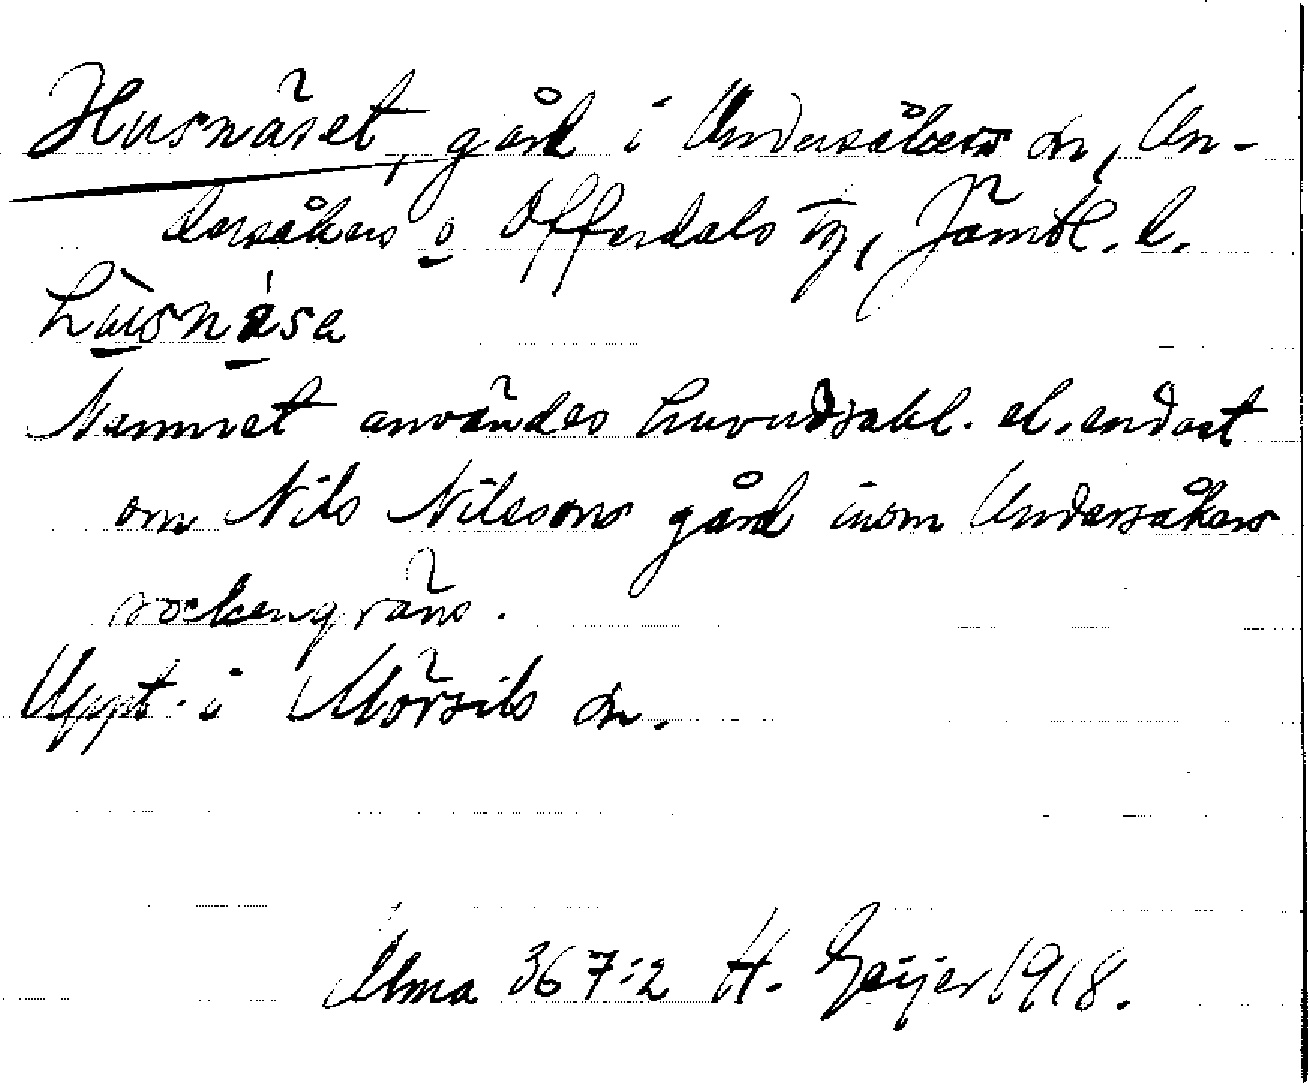 Husnäset, gård i Undersåkers sn, Un-
dersåkers o Offerdals tg, Jämtl. l.
hùsnä́sa
Namnet användes huvudsakl. el. endast
om Nils Nilssons gård inom Undersåkers
sockengräns.
Uppt. i Mörsils sn.
Ulma 367:2 H. Geijer 1918.